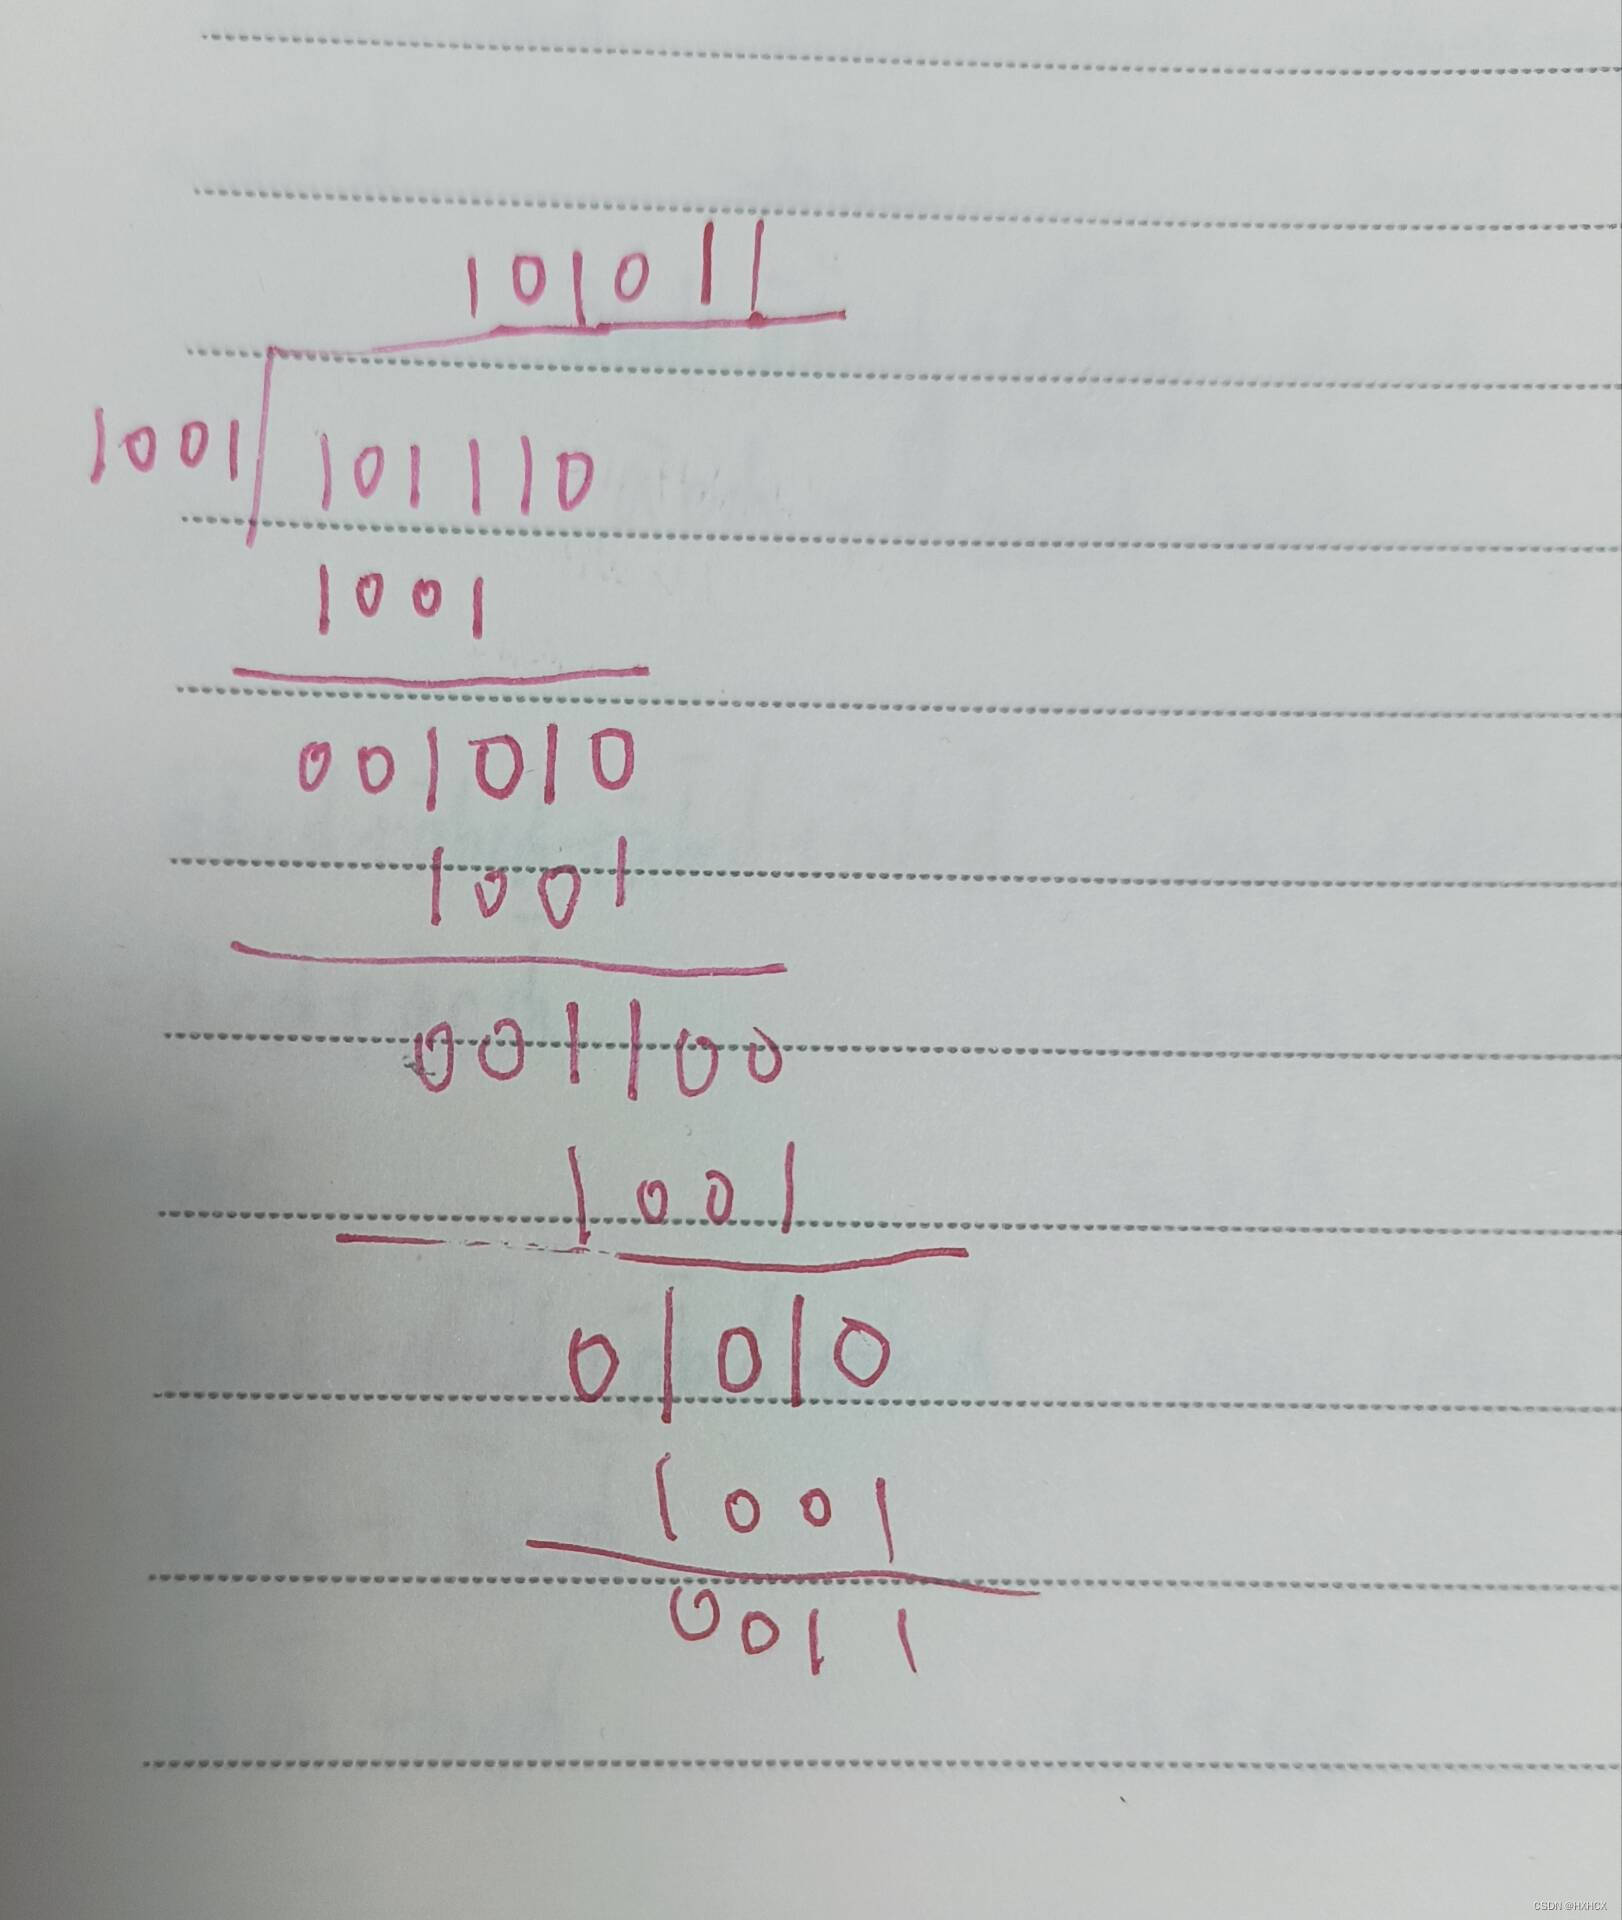 101011
1001 101110
1001
001010
1001
001100
1001
01010
1001
0011
CSDN @HXHCX